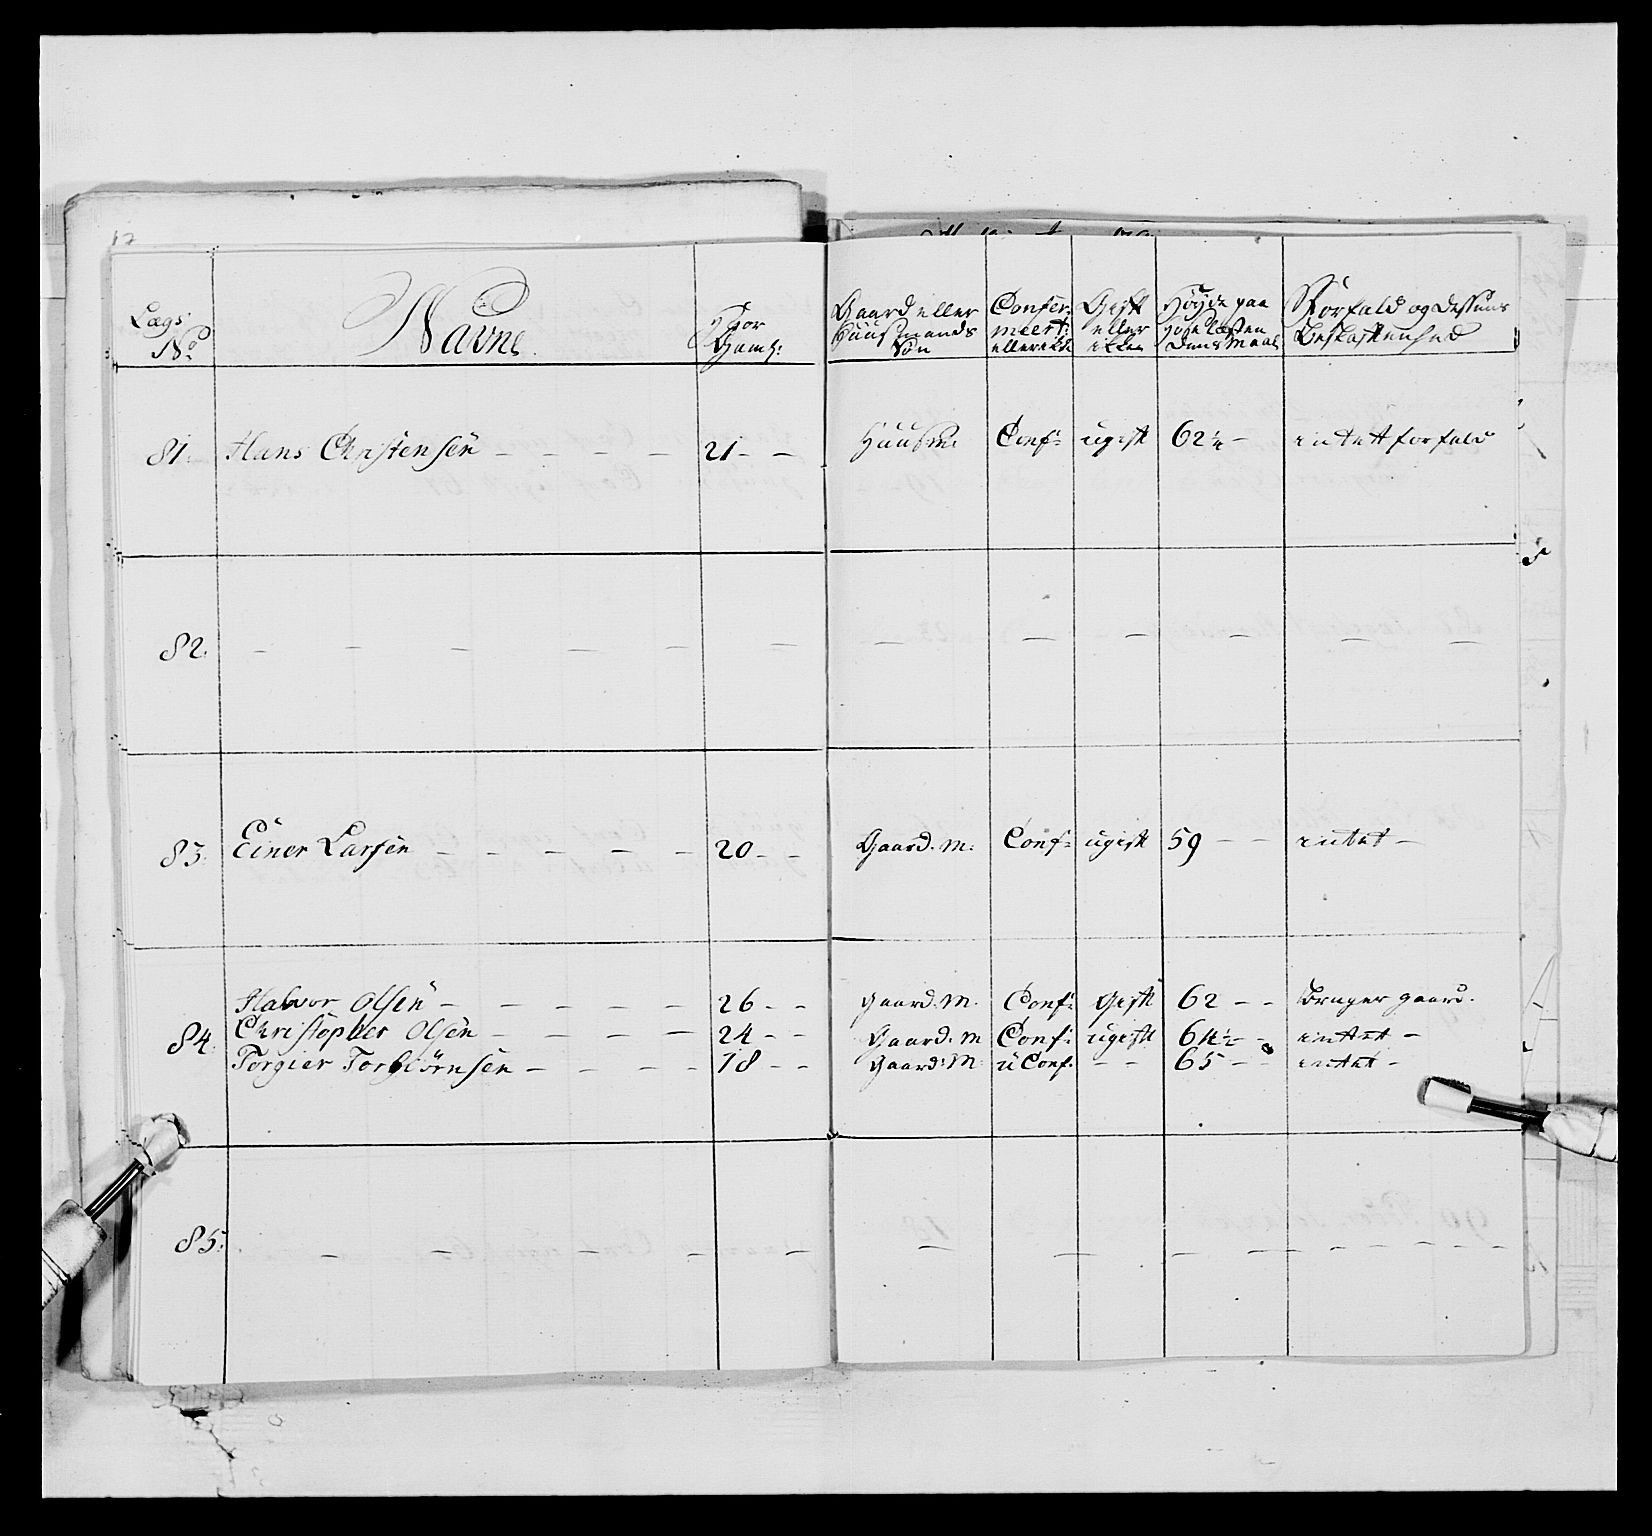 17
Lægs
No
Navne
Hvor
Gaml:
Gaard eller
Huusmands
Søn
Confer:
meert:
eller ikke
Gift
eller
ikke
Høyde paa
Maal
Forfald og Dessens
Beskaffenhed
81. Hans Christensen - - - - 21 - - Huusm: Conf: ugift 62¼ - intet forfald
82. - - - - - - - - - - - -
83. Einer Larsen - - - - - 20 - - Gaard. M: Conf: ugift 59 - - intet -
Halvor Olsen - - - - - 26 - - Gaard. M. Conf: Gift 62 - - bruger gaard.
84. Christopher Olsen - - - - 24 - - Gaard. M Conf: ugift 64½ - - intet -
Torgier Torbiörnsen - - - - 18 - - Gaard: M: uConf. - - 65 - - intet -
85. - - - - - - - - - - - - -